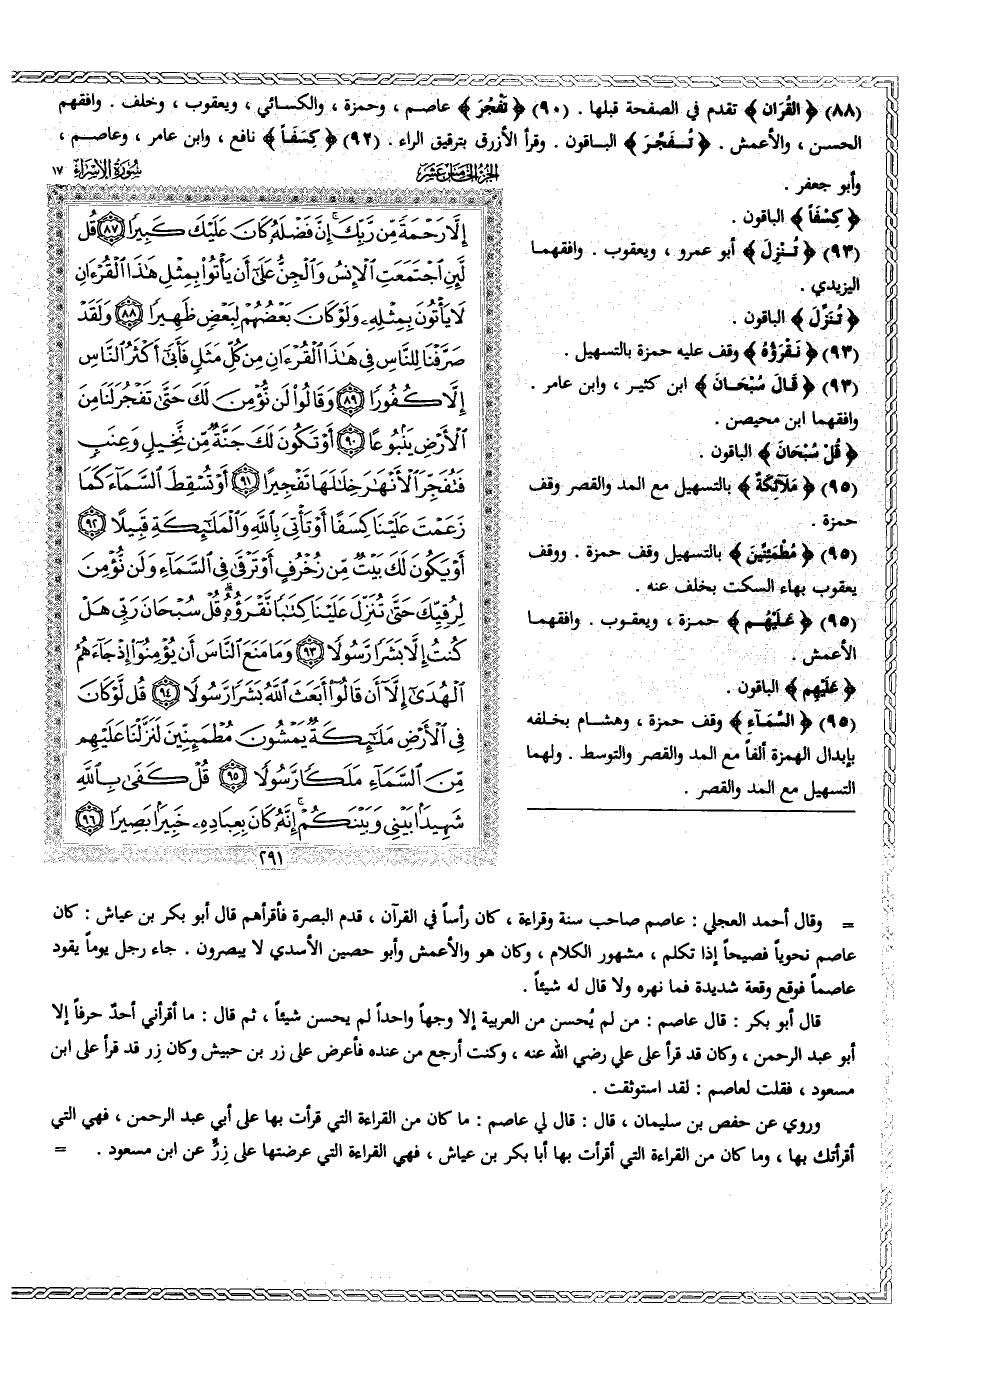 (٨٨) ﴿ القُرَان ﴾ تقدم في الصفحة قبلها . (٩٠) ﴿ تَفْجُرَ ﴾ عاصم ، وحمزة ، والكسائي ، ويعقوب ، وخلف . وافقهم
الحسن ، والأعمش . ﴿ تُـفَجِّـرَ ﴾ البـاقون . وقرأ الأزرق بترقيق الراء . (٩٢) ﴿ كِسَفَـاً ﴾ نافع ، وابن عامر ، وعاصـم ،
وأبو جعفر .
﴿ كِسْفَاً ﴾ الباقون .
(٩٣) ﴿ تُـنْزِلَ ﴾ أبو عمرو ، ويعقوب . وافقهمـا
اليزيدي .
﴿ تُنَزِّلَ ﴾ الباقون .
(٩٣) ﴿ نَقْرَؤُهُ ﴾ وقف عليه حمزة بالتسهيل .
(٩٣) ﴿ قَـالَ سُبْحَـانَ ﴾ ابن كثيـر ، وابن عامر .
وافقهما ابن محيصن .
﴿ قُلْ سُبْحَانَ ﴾ الباقون .
(٩٥) ﴿ مَلَآئِكَةٌ ﴾ بالتسهيل مع المد والقصر وقف
حمزة .
(٩٥) ﴿ مُطْمَئِنِّينَ ﴾ بالتسهيل وقف حمزة . ووقف
يعقوب بهاء السكت بخلف عنه .
(٩٥) ﴿ عَـلَيْهُـم ﴾ حمـزة ، ويعقـوب . وافقهمـا
الأعمش .
﴿ عَلَيْهِم ﴾ الباقون .
(٩٥) ﴿ السَّمَـآءِ ﴾ وقف حمزة ، وهشـام بخـلفه
بإبدال الهمزة ألفاً مع المد والقصر والتوسط . ولهما
التسهيل مع المد والقصر .
الجزء الخامس عشر سورة الإسراء ١٧
إِلَّا رَحْمَةً مِّن رَّبِّكَ ۚ إِنَّ فَضْلَهُۥ كَانَ عَلَيْكَ كَبِيرًا ٨٧ قُل
لَّئِنِ ٱجْتَمَعَتِ ٱلْإِنسُ وَٱلْجِنُّ عَلَىٰٓ أَن يَأْتُوا۟ بِمِثْلِ هَٰذَا ٱلْقُرْءَانِ
لَا يَأْتُونَ بِمِثْلِهِۦ وَلَوْ كَانَ بَعْضُهُمْ لِبَعْضٍ ظَهِيرًا ٨٨ وَلَقَدْ
صَرَّفْنَا لِلنَّاسِ فِى هَٰذَا ٱلْقُرْءَانِ مِن كُلِّ مَثَلٍ فَأَبَىٰٓ أَكْثَرُ ٱلنَّاسِ
إِلَّا كُفُورًا ٨٩ وَقَالُوا۟ لَن نُّؤْمِنَ لَكَ حَتَّىٰ تَفْجُرَ لَنَا مِنَ
ٱلْأَرْضِ يَنۢبُوعًا ٩٠ أَوْ تَكُونَ لَكَ جَنَّةٌ مِّن نَّخِيلٍ وَعِنَبٍ
فَتُفَجِّرَ ٱلْأَنْهَٰرَ خِلَٰلَهَا تَفْجِيرًا ٩١ أَوْ تُسْقِطَ ٱلسَّمَآءَ كَمَا
زَعَمْتَ عَلَيْنَا كِسَفًا أَوْ تَأْتِىَ بِٱللَّهِ وَٱلْمَلَٰٓئِكَةِ قَبِيلًا ٩٢
أَوْ يَكُونَ لَكَ بَيْتٌ مِّن زُخْرُفٍ أَوْ تَرْقَىٰ فِى ٱلسَّمَآءِ وَلَن نُّؤْمِنَ
لِرُقِيِّكَ حَتَّىٰ تُنَزِّلَ عَلَيْنَا كِتَٰبًا نَّقْرَؤُهُۥ ۗ قُلْ سُبْحَانَ رَبِّى هَلْ
كُنتُ إِلَّا بَشَرًا رَّسُولًا ٩٣ وَمَا مَنَعَ ٱلنَّاسَ أَن يُؤْمِنُوٓا۟ إِذْ جَآءَهُمُ
ٱلْهُدَىٰٓ إِلَّآ أَن قَالُوٓا۟ أَبَعَثَ ٱللَّهُ بَشَرًا رَّسُولًا ٩٤ قُل لَّوْ كَانَ
فِى ٱلْأَرْضِ مَلَٰٓئِكَةٌ يَمْشُونَ مُطْمَئِنِّينَ لَنَزَّلْنَا عَلَيْهِم
مِّنَ ٱلسَّمَآءِ مَلَكًا رَّسُولًا ٩٥ قُلْ كَفَىٰ بِٱللَّهِ
شَهِيدًۢا بَيْنِى وَبَيْنَكُمْ ۚ إِنَّهُۥ كَانَ بِعِبَادِهِۦ خَبِيرًۢا بَصِيرًا ٩٦
٢٩١
= وقال أحمد العجلي : عاصم صاحب سنة وقراءة ، كان رأساً في القرآن ، قدم البصرة فأقرأهم قال أبو بكر بن عياش : كان
عاصم نحوياً فصيحاً إذا تكلم ، مشهور الكلام ، وكان هو والأعمش وأبو حصين الأسدي لا يبصرون . جاء رجل يوماً يقود
عاصماً فوقع وقعة شديدة فما نهره ولا قال له شيئاً .
قال أبو بكر : قال عاصم : من لم يُحسن من العربية إلا وجهاً واحداً لم يحسن شيئاً ، ثم قال : ما أقرأني أحدٌ حرفاً إلا
أبو عبد الرحمن ، وكان قد قرأ على علي رضي الله عنه ، وكنت أرجع من عنده فأعرض على زر بن حبيش وكان زِر قد قرأ على ابن
مسعود ، فقلت لعاصم : لقد استوثقت .
وروي عن حفص بن سليمان ، قال : قال لي عاصم : ما كان من القراءة التي قرأت بها على أبي عبد الرحمن ، فهي التي
أقرأتك بها ، وما كان من القراءة التي أقرأت بها أبا بكر بن عياش ، فهي القراءة التي عرضتها على زِرٍّ عن ابن مسعود . =